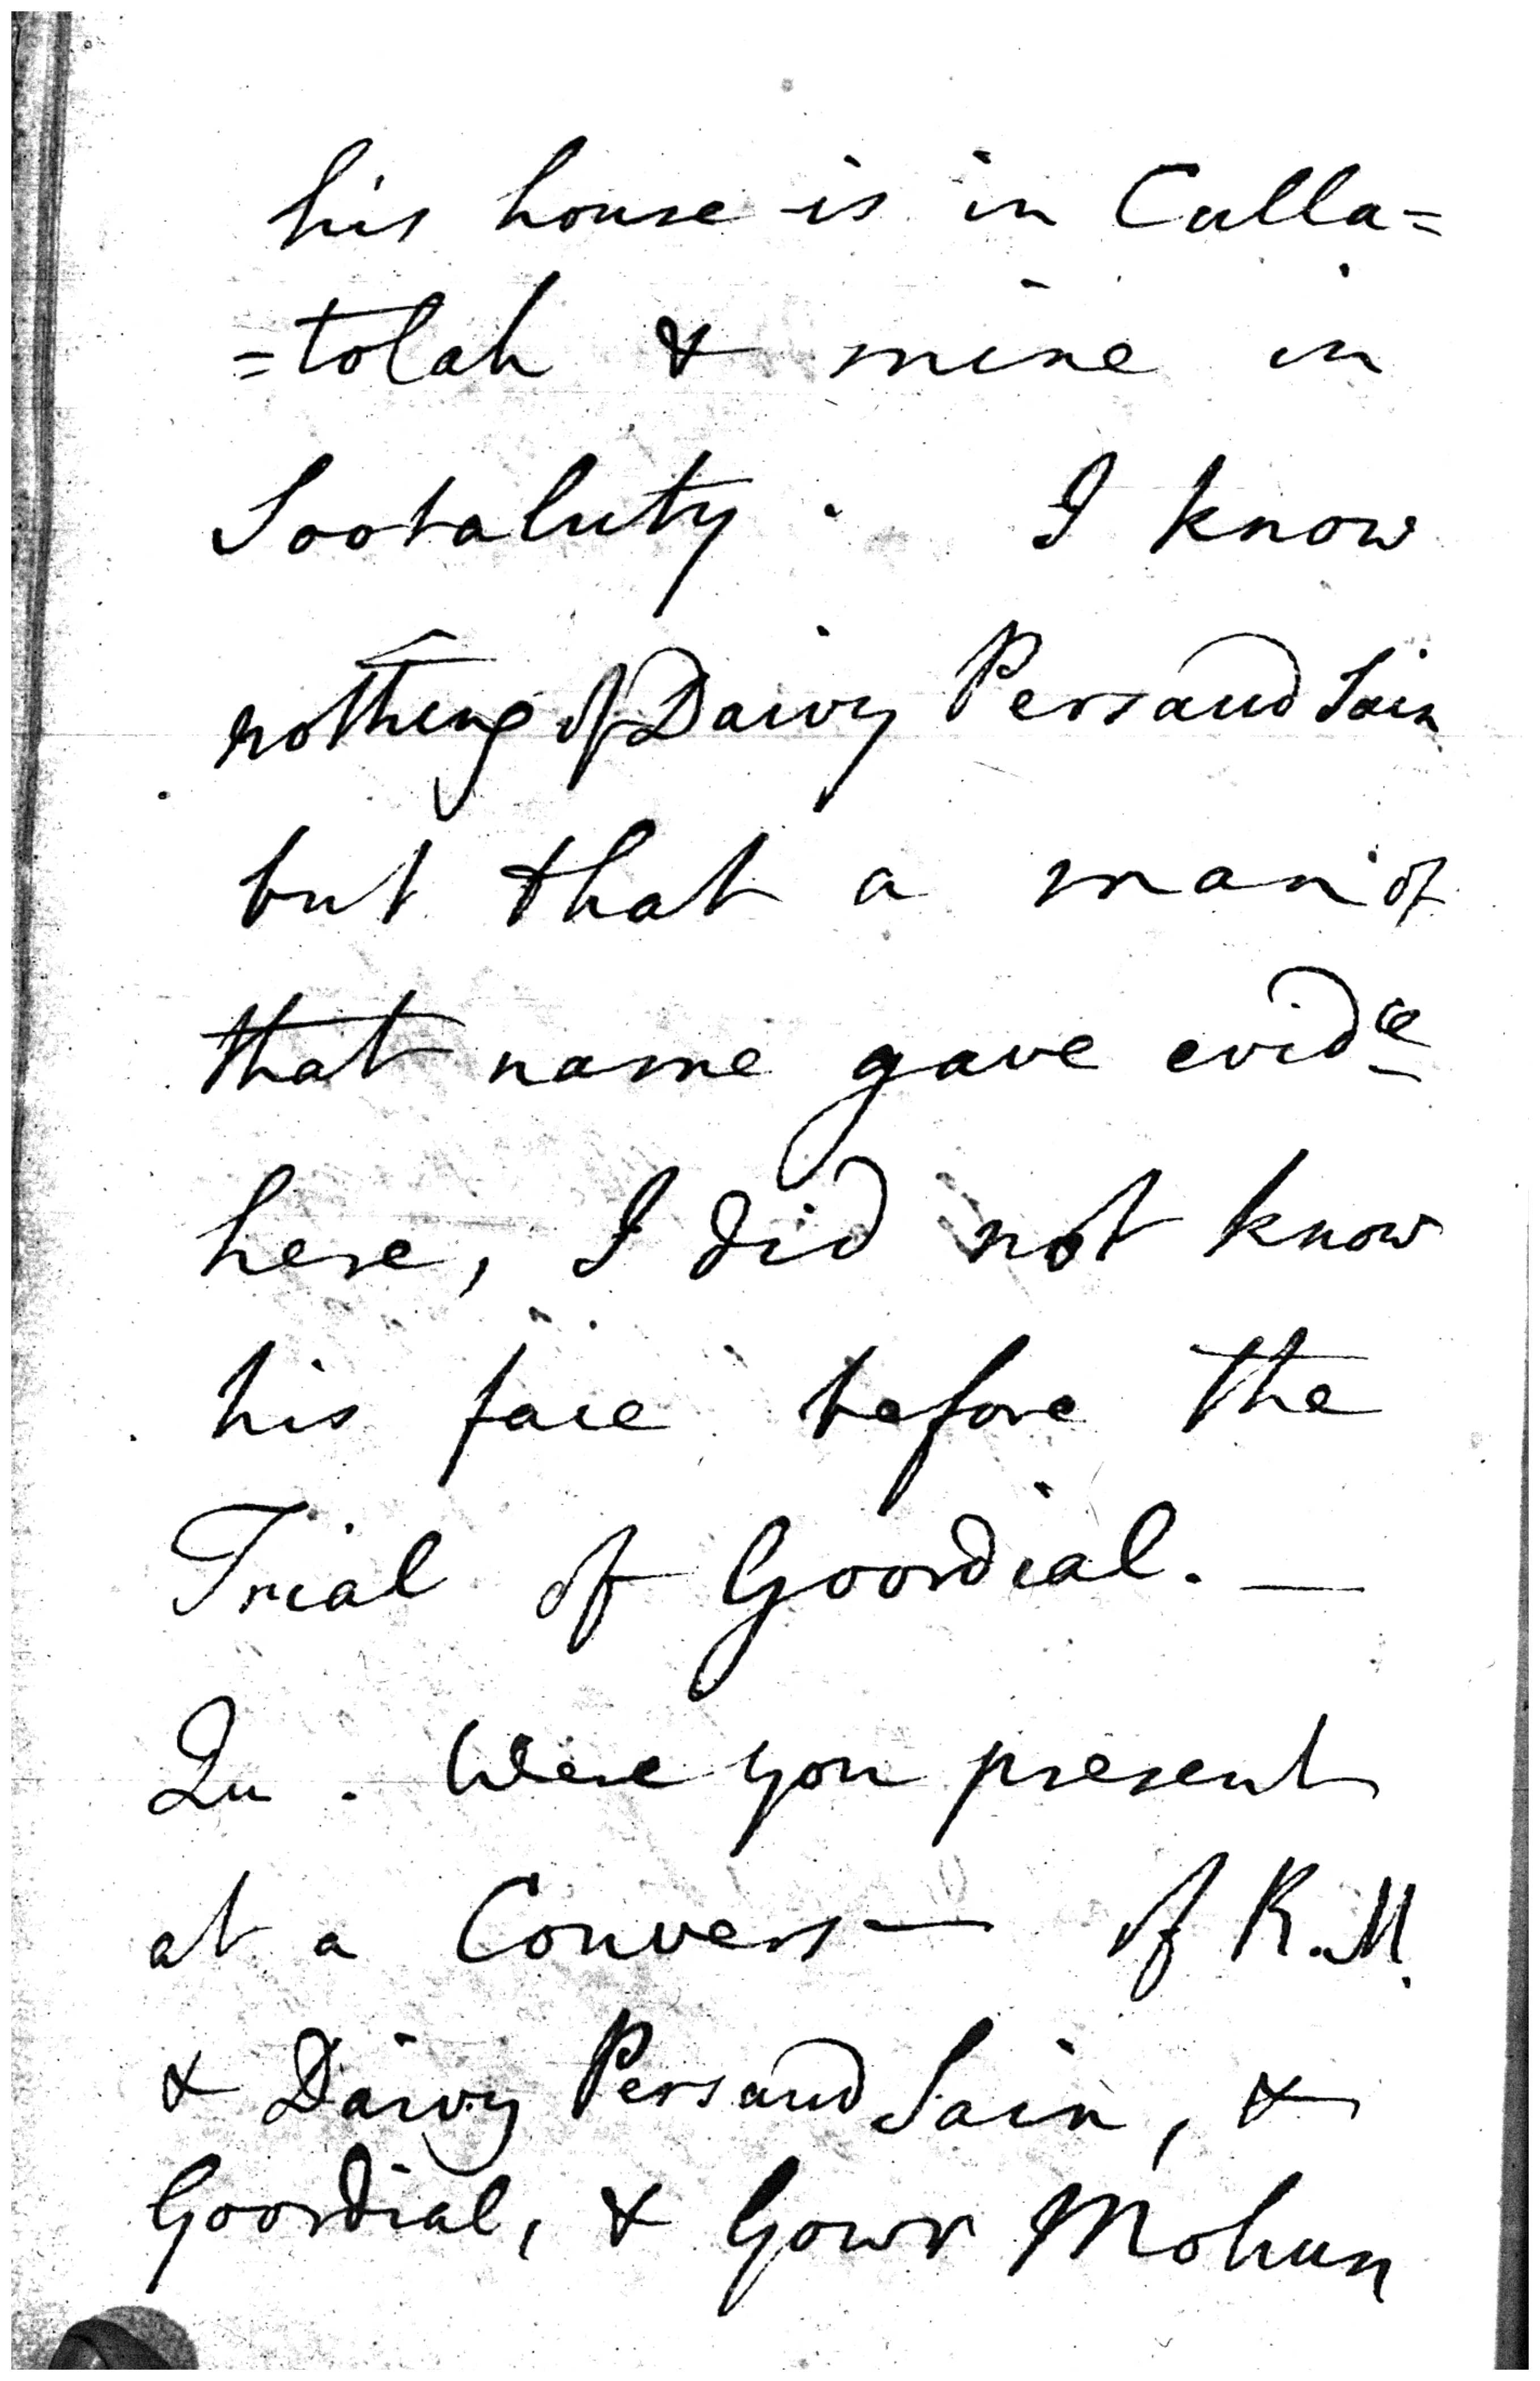 his house is in Culla=
=tolah & mine in
Sootaluty. I know
nothing of Daivy Persaud Sain
but that a man of
that name gave evidce
here, I did not know
his face before the
Trial of Goordial. —
Qu. Were you present
at a Convers— of R. M.
& Daivy Persaud Sain, &
Goordial, & Gowr Mohun